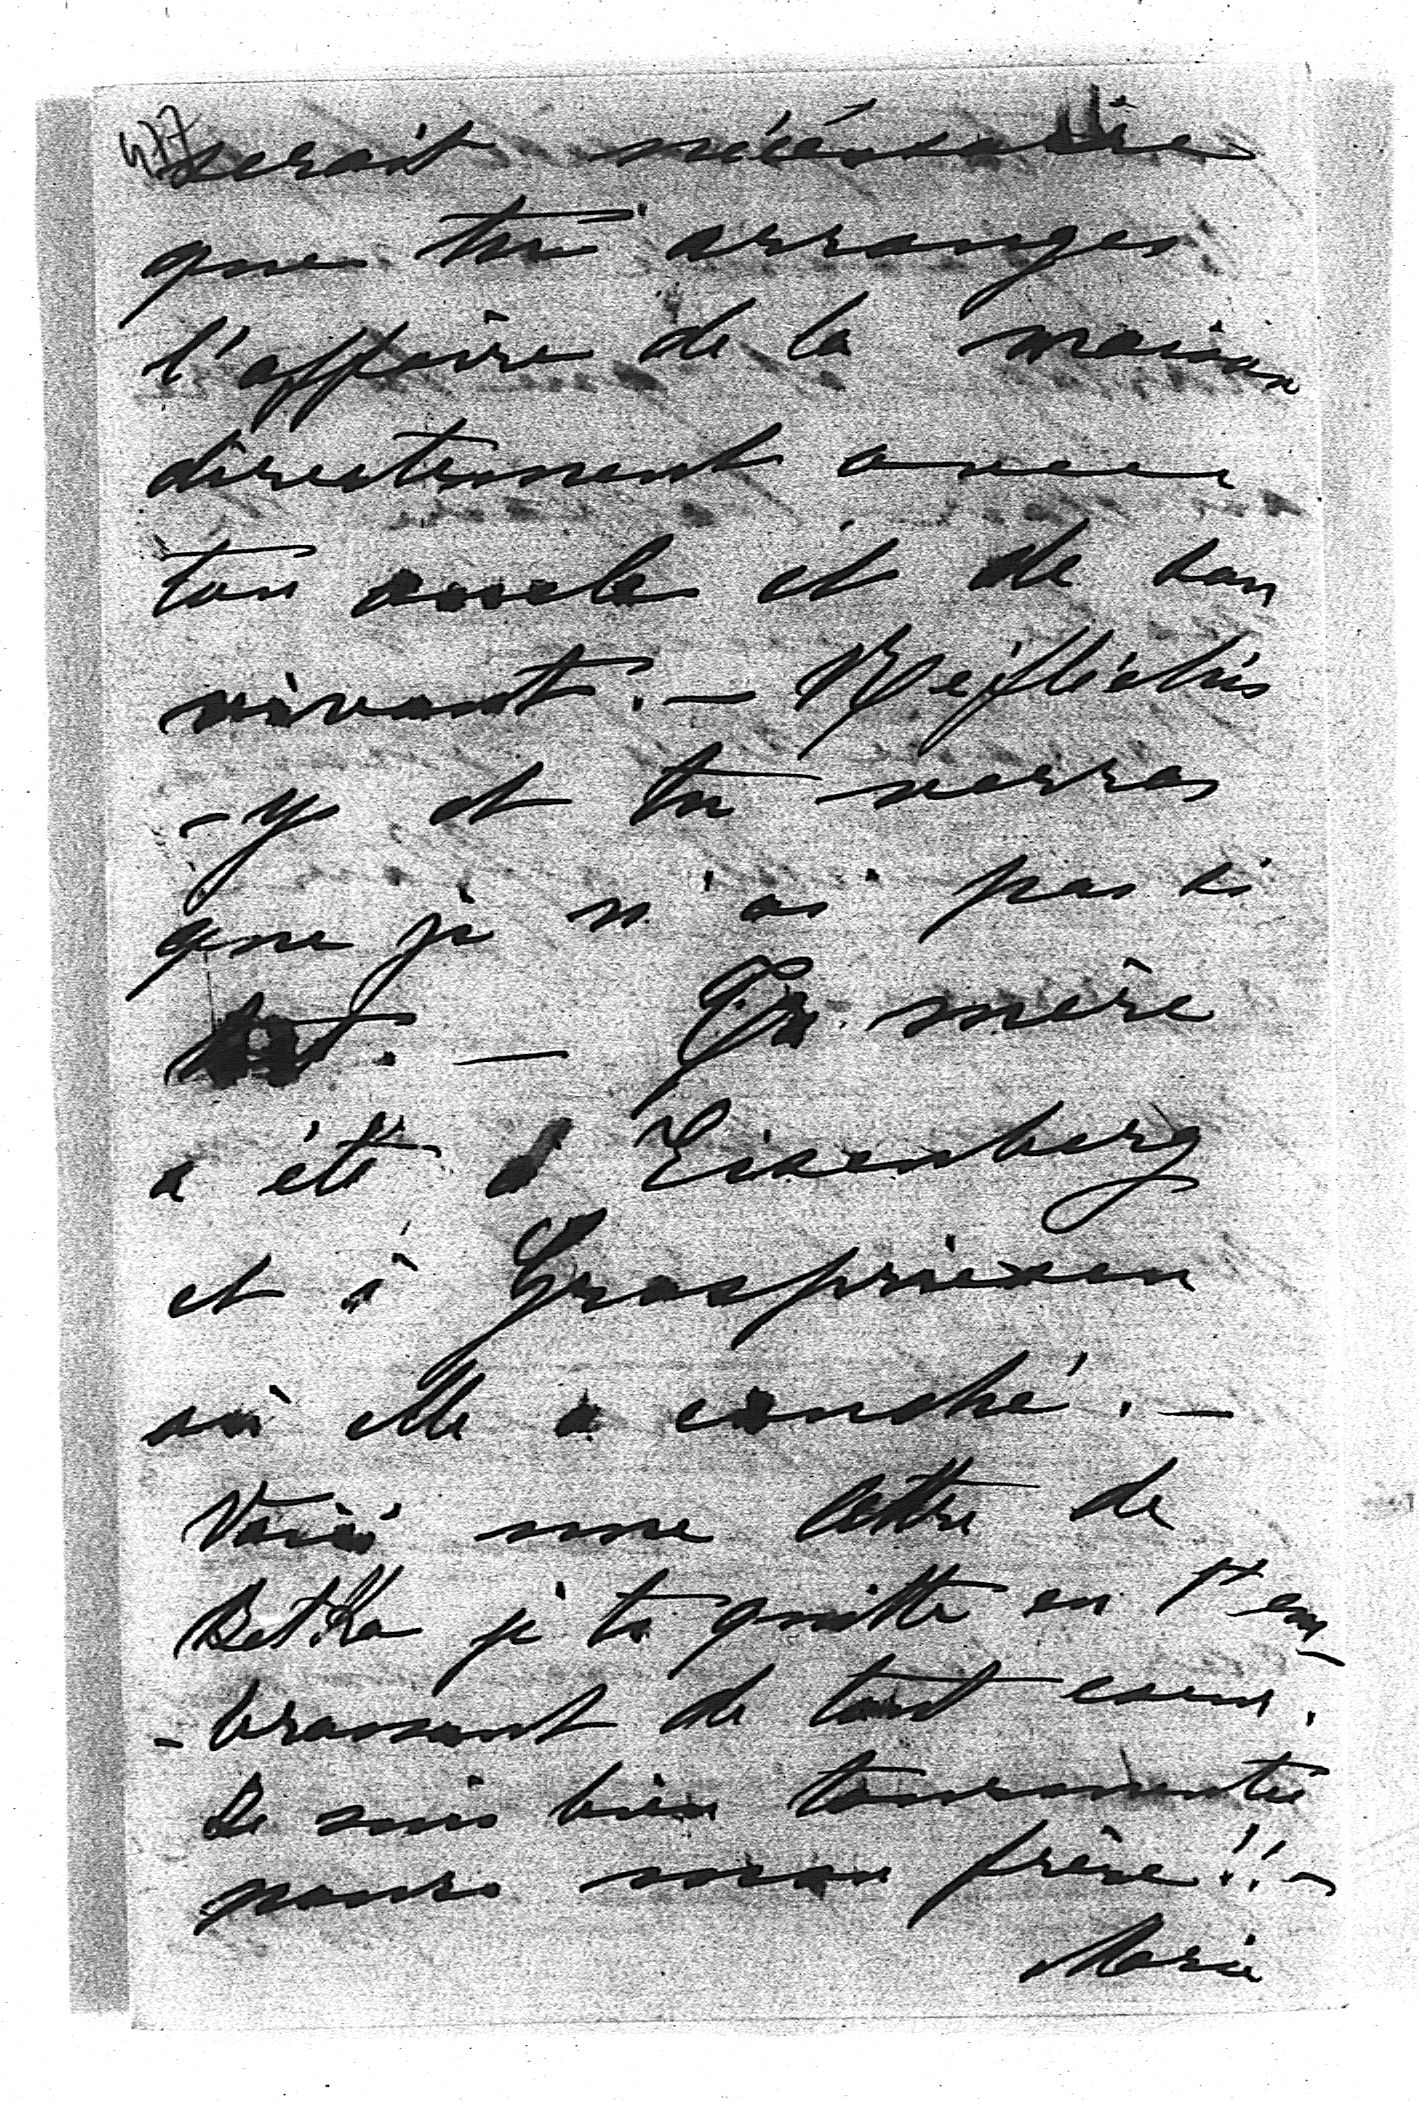 417
serait nécéssaire
que tu arranges
l'affaire de la maison
directement avec
ton oncle et de son
vivant. — Réfléchis
-y et tu verras
que je n'ai pas si
tort. — Ta mère
a été à Eisenberg
et à Grosspriesen
où elle a couché. —
Voici une lettre de
Betka je te quitte en t'em
-brassant de tout coeur.
Je suis bien tourmentée
pour mon frère!! —
Marie